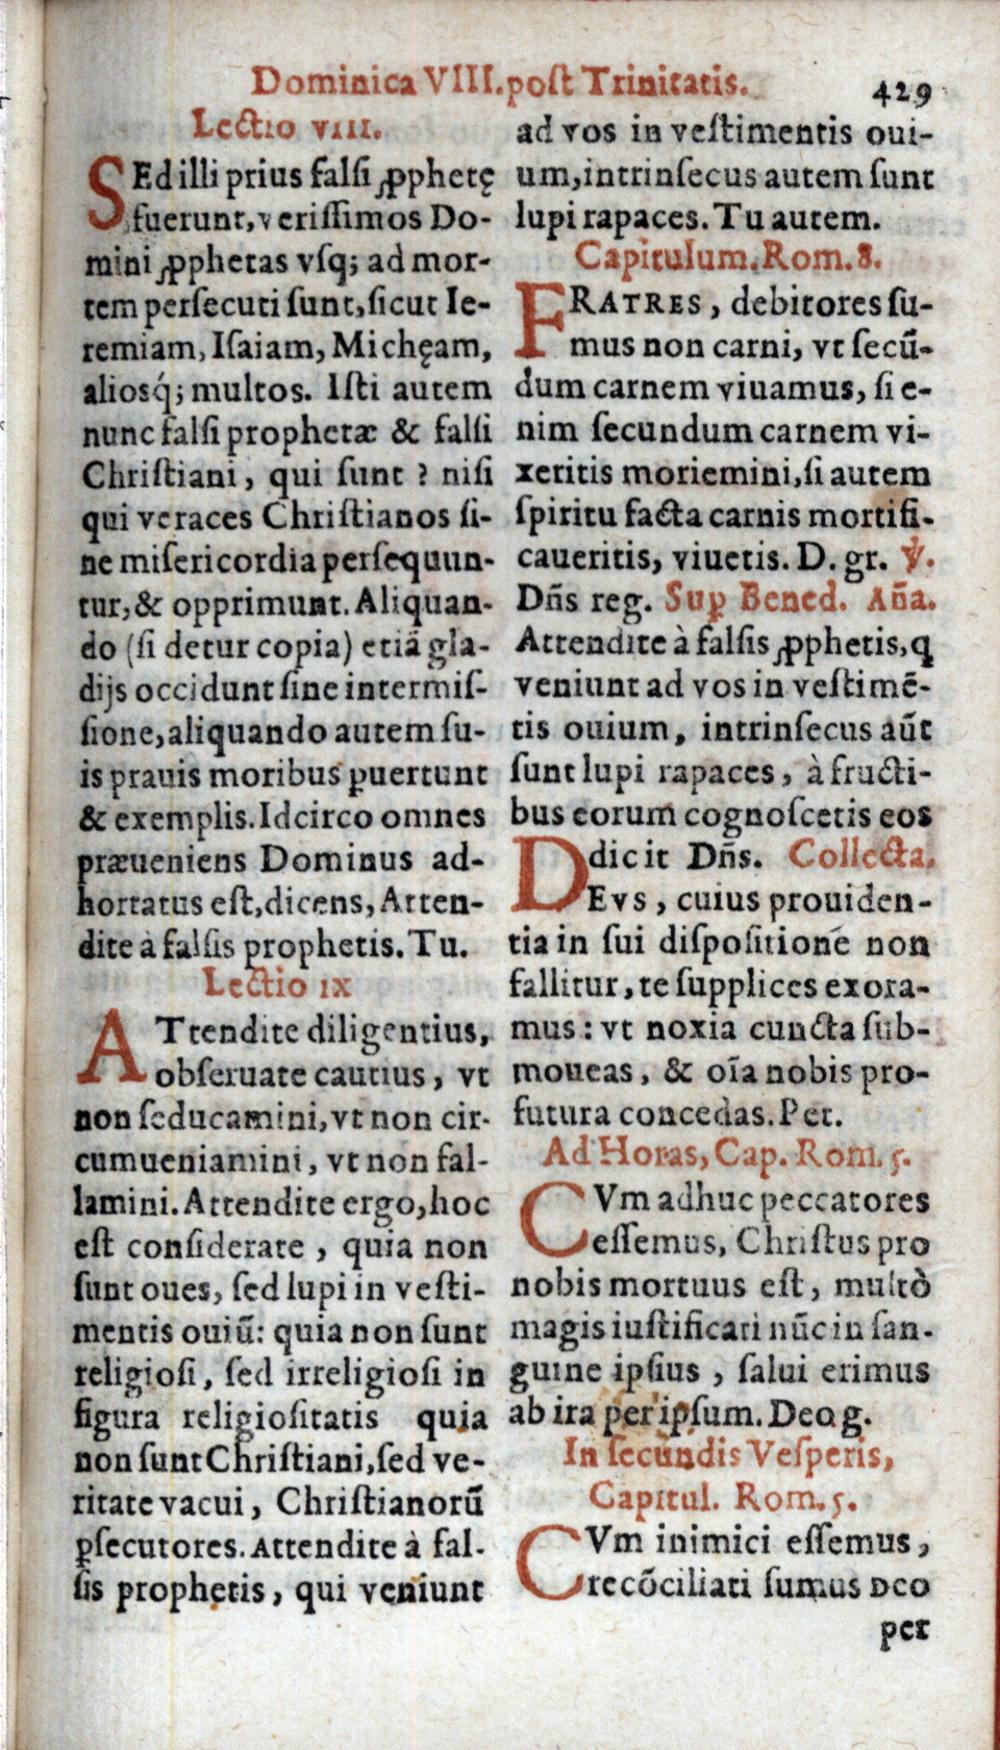 Dominica VIII. post Trinitatis. 429
Lectio VIII.
SEd illi prius falſi ꝓphetę
fuerunt, veriſſimos Do-
mini ꝓphetas vſq; ad mor-
tem perſecuti ſunt, ſicut Ie-
remiam, Iſaiam, Michęam,
aliosq́; multos. Iſti autem
nunc falſi prophetæ & falſi
Chriſtiani, qui ſunt ? niſi
qui veraces Chriſtianos ſi-
ne miſericordia perſequun-
tur, & opprimunt. Aliquan-
do (ſi detur copia) etiã gla-
dijs occidunt ſine intermiſ-
ſione, aliquando autem ſu-
is prauis moribus ꝑuertunt
& exemplis. Idcirco omnes
præueniens Dominus ad-
hortatus eſt, dicens, Atten-
dite à falſis prophetis. Tu.
Lectio IX
ATtendite diligentius,
obſeruate cautius, vt
non ſeducamini, vt non cir-
cumueniamini, vt non fal-
lamini. Attendite ergo, hoc
eſt conſiderate, quia non
ſunt oues, ſed lupi in veſti-
mentis ouiũ: quia non ſunt
religioſi, ſed irreligioſi in
figura religioſitatis quia
non ſunt Chriſtiani, ſed ve-
ritate vacui, Chriſtianorũ
ꝑſecutores. Attendite à fal-
ſis prophetis, qui veniunt
ad vos in veſtimentis oui-
um, intrinſecus autem ſunt
lupi rapaces. Tu autem.
Capitulum. Rom. 8.
FRATRES, debitores ſu-
mus non carni, vt ſecũ-
dum carnem viuamus, ſi e-
nim ſecundum carnem vi-
xeritis moriemini, ſi autem
ſpiritu facta carnis mortifi-
caueritis, viuetis. D. gr. ℣.
Dñs reg. Suꝑ Bened. Aña.
Attendite à falſis ꝓphetis, q
veniunt ad vos in veſtimẽ-
tis ouium, intrinſecus aũt
ſunt lupi rapaces, à fructi-
bus eorum cognoſcetis eos
dicit Dñs. Collecta.
DEvs, cuius prouiden-
tia in ſui diſpoſitione non
fallitur, te ſupplices exora-
mus: vt noxia cuncta ſub-
moueas, & oĩa nobis pro-
futura concedas. Per.
Ad Horas, Cap. Rom. 5.
CVm adhuc peccatores
eſſemus, Chriſtus pro
nobis mortuus eſt, multò
magis iuſtificati nũc in ſan-
guine ipſius, ſalui erimus
ab ira per ipſum. Deo g.
In ſecundis Veſperis,
Capitul. Rom. 5.
CVm inimici eſſemus,
recõciliati ſumus Deo
per